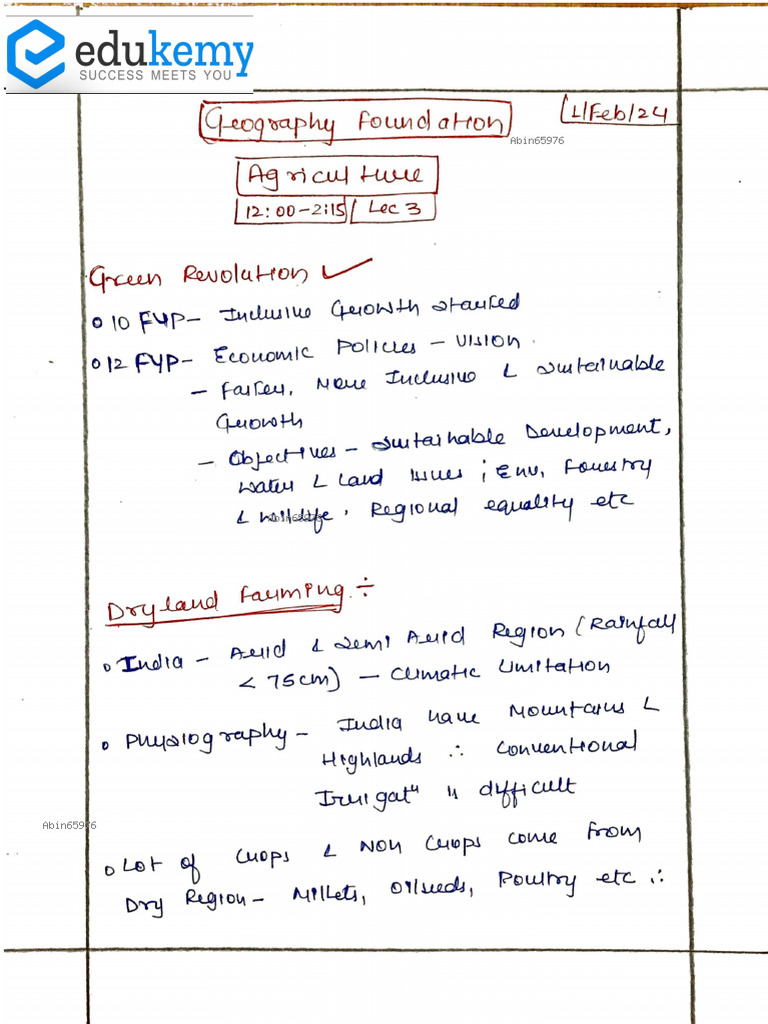 edukemy
SUCCESS MEETS YOU
Geography Foundation
1/Feb/24
Abin65976
Agriculture
12:00-2:15 Lec 3
Green Revolution ✓
10 FYP- Inclusive Growth started
12 FYP- Economic Policies - Vision.
- Faster, More Inclusive & Sustainable
Growth
- Objectives - Sustainable Development,
Water & Land Issues ; Env, Forestry
& Wildlife, Regional equality etc
Abin65976
Dryland Farming ÷
India - Arid & Semi Arid Region (Rainfall
< 75cm) - Climatic Limitation
Physiography - India have Mountains &
Highlands ∴ Conventional
Irrigatⁿ is difficult
Abin65976
Lot of Crops & Non Crops come from
Dry Region - Millets, Oilseeds, Poultry etc ∴